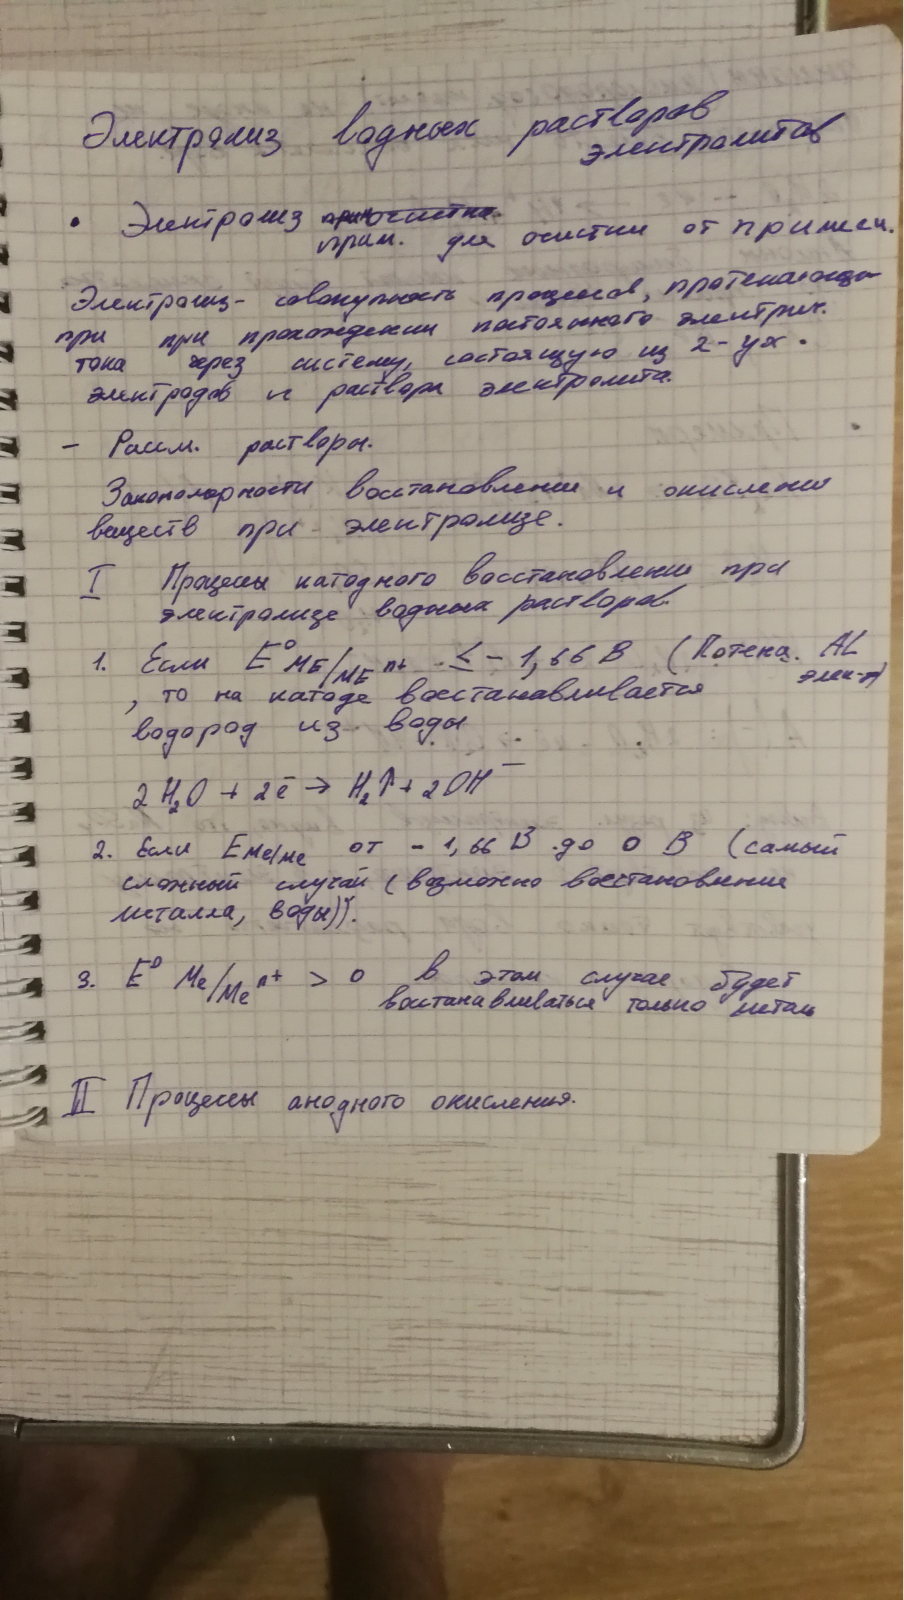 Электролиз водных растворов
электролитов
• Электролиз
прим. для очистки от примеси.
Электролиз - совокупность процессов, протекающих
при при прохождении постоянного электрич.
тока через систему, состоящую из 2-ух
электродов и раствора электролита.
- Рассм. растворы.
Закономорности восстановление и окисления
веществ при электролизе.
I Процессы катодного восстановление при
электролизе водных растворов.
1. Если E⁰ ME/MEⁿ⁺ ≤ - 1,66 В (Потенц. AL
элек-т)
, то на катоде восстанавливается
водород из воды
2H₂O + 2ē → H₂↑ + 2OH⁻
2. Если E Me/Me от - 1,66 В до 0 В (самый
сложный случай (возможно восстановление
металла, воды)).
3. E⁰ Me/Meⁿ⁺ > 0 в этом случае будет
восстанавливаться только металл
II Процессы анодного окисления.